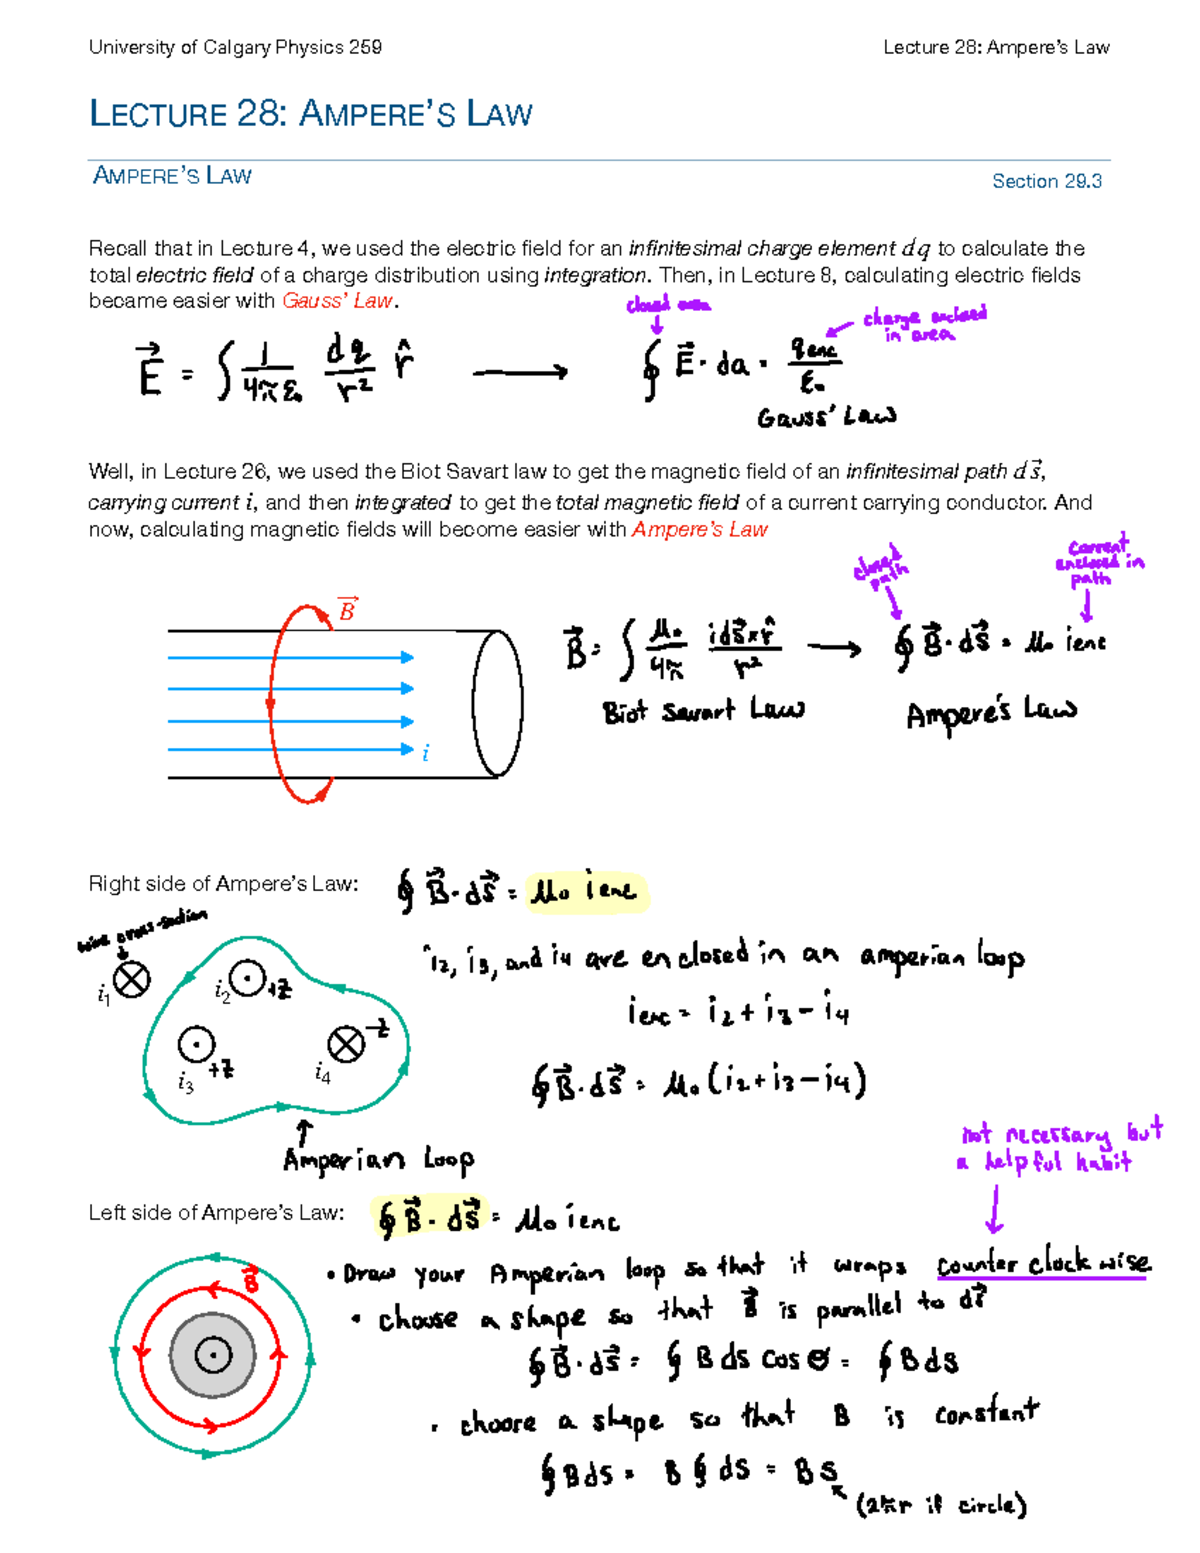 University of Calgary Physics 259 Lecture 28: Ampere's Law
LECTURE 28: AMPERE'S LAW
AMPERE'S LAW Section 29.3
Recall that in Lecture 4, we used the electric field for an infinitesimal charge element dq to calculate the
total electric field of a charge distribution using integration. Then, in Lecture 8, calculating electric fields
became easier with Gauss' Law.
closed area
charge enclosed
in area
E⃗ = ∫ 1/4πε₀ dq/r² r̂ → ∮ E⃗ · da = qenc/ε₀
Gauss' Law
Well, in Lecture 26, we used the Biot Savart law to get the magnetic field of an infinitesimal path ds⃗,
carrying current i, and then integrated to get the total magnetic field of a current carrying conductor. And
now, calculating magnetic fields will become easier with Ampere's Law
closed
path
current
enclosed in
path
B⃗
i
B⃗ = ∫ μ₀/4π ids⃗×r̂/r² → ∮ B⃗ · ds⃗ = μ₀ ienc
Biot Savart Law Ampere's Law
Right side of Ampere's Law: ∮ B⃗ · ds⃗ = μ₀ ienc
wire cross-section
i₁
i₂ +z
i₃ +z
i₄ -z
Amperian Loop
i₂, i₃, and i₄ are enclosed in an amperian loop
ienc = i₂ + i₃ - i₄
∮ B⃗ · ds⃗ = μ₀ (i₂ + i₃ - i₄)
not necessary but
a helpful habit
Left side of Ampere's Law: ∮ B⃗ · ds⃗ = μ₀ ienc
B⃗
• Draw your Amperian loop so that it wraps counter clockwise
• choose a shape so that B⃗ is parallel to ds⃗
∮ B⃗ · ds⃗ = ∮ B ds cos θ = ∮ B ds
• choose a shape so that B is constant
∮ B ds = B ∮ ds = B s
(2πr if circle)